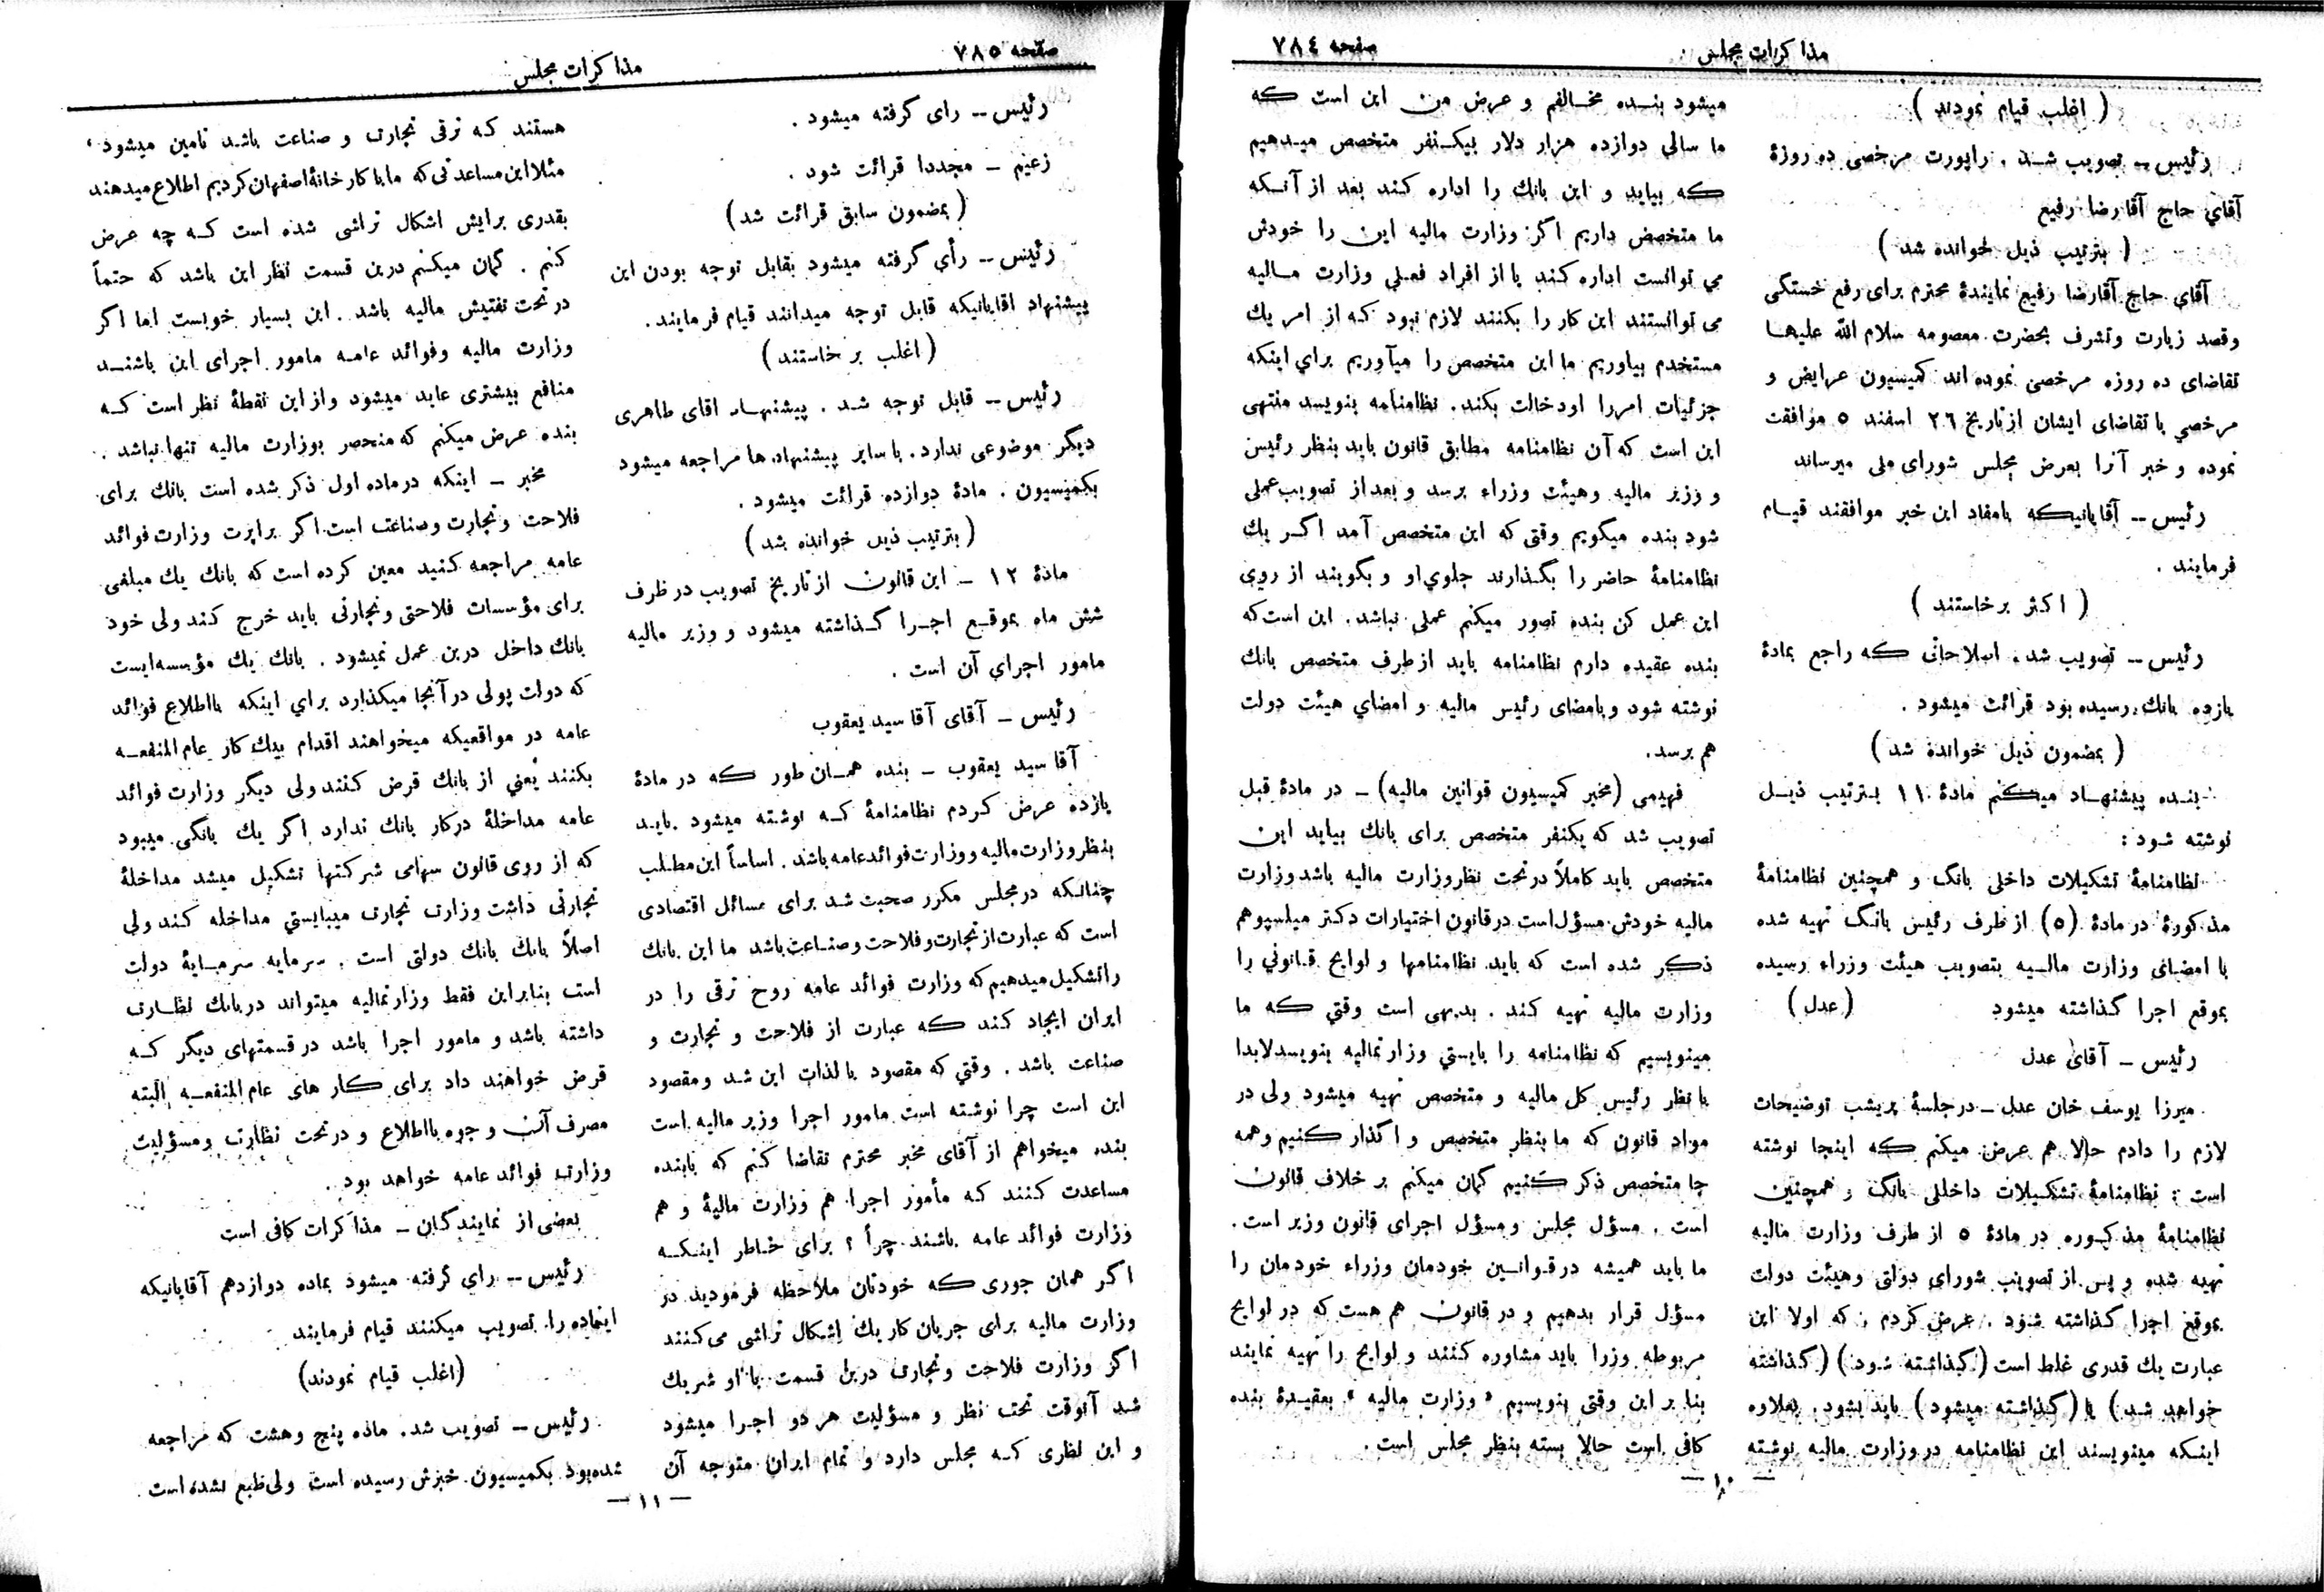 مذاکرات مجلس
صفحه ۷۸٤
( اغلب قیام نمودند )
رئیس ــ تصویب شد . راپورت مرخصی ده روزهٔ
آقاي حاج آقارضا رفیع
( بترتیب ذیل خوانده شد )
آقاي حاج آقارضا رفیع نمایندهٔ محترم برای رفع خستگی
وقصد زیارت وتشرف بحضرت معصومه سلام الله علیها
تقاضای ده روزه مرخصی نموده اند کمیسیون عرایض و
مرخصي با تقاضای ایشان از تاریخ ۲٦ اسفند ٥ موافقت
نموده و خبر آنرا بعرض مجلس شورای ملی میرساند
رئیس ــ آقایانیکه بامفاد این خبر موافقند قیام
فرمایند .
( اکثر برخاستند )
رئیس ــ تصویب شد . اصلاحاتی که راجع بمادهٔ
یازده بانك رسیده بود قرائت میشود .
( بمضمون ذیل خوانده شد )
بنده پیشنهاد میکنم مادهٔ ۱۱ بترتیب ذیل
نوشته شود :
نظامنامهٔ تشکیلات داخلی بانگ و همچنین نظامنامهٔ
مذکورهٔ در مادهٔ (٥) از طرف رئیس بانگ تهیه شده
با امضای وزارت مالیه بتصویب هیئت وزراء رسیده
بموقع اجرا گذاشته میشود (عدل)
رئیس ــ آقای عدل
میرزا یوسف خان عدل ــ درجلسهٔ پریشب توضیحات
لازم را دادم حالا هم عرض میکنم که اینجا نوشته
است : نظامنامهٔ تشکیلات داخلی بانگ و همچنین
نظامنامهٔ مذکوره در مادهٔ ٥ از طرف وزارت مالیه
تهیه شده و پس از تصویب شورای دولتی وهیئت دولت
بموقع اجرا گذاشته شود . عرض کردم ، که اولا این
عبارت یك قدری غلط است (گذاشته شود) (گذاشته
خواهد شد) یا (گذاشته میشود) باید بشود . بعلاوه
اینکه مینویسند این نظامنامه دروزارت مالیه نوشته
میشود بنده مخالفم و عرض من این است که
ما سالي دوازده هزار دلار بیکنفر متخصص میدهیم
که بیاید و این بانك را اداره کند بعد از آنکه
ما متخصص داریم اگر وزارت مالیه این را خودش
مي توانست اداره کند یا از افراد فعلي وزارت مالیه
می توانستند این کار را بکنند لازم نبود که از امریك
مستخدم بیاوریم ما این متخصص را میآوریم براي اینکه
جزئیات امررا اودخالت بکند . نظامنامه بنویسد منتهی
این است که آن نظامنامه مطابق قانون باید بنظر رئیس
و وزیر مالیه وهیئت وزراء برسد و بعد از تصویب عملی
شود بنده میگویم وقتی که این متخصص آمد اگر یك
نظامنامهٔ حاضر را بگذارند جلوي او و بگویند از روي
این عمل کن بنده تصور میکنم عملی نباشد . این است که
بنده عقیده دارم نظامنامه باید از طرف متخصص بانك
نوشته شود و بامضای رئیس مالیه و امضاي هیئت دولت
هم برسد .
فهیمی (مخبر کمیسیون قوانین مالیه) ــ در مادهٔ قبل
تصویب شد که یکنفر متخصص برای بانك بیاید این
متخصص باید کاملاً در تحت نظر وزارت مالیه باشد وزارت
مالیه خودش مسؤل است در قانون اختیارات دکتر میلسپو هم
ذکر شده است که باید نظامنامها و لوایح قانوني را
وزارت مالیه تهیه کند . بدیهی است وقتي که ما
مینویسیم که نظامنامه را بایستي وزارتمالیه بنویسد لابدا
با نظر رئیس کل مالیه و متخصص تهیه میشود ولی در
مواد قانون که ما بنظر متخصص واگذار کنیم وهمه
جا متخصص ذکر کنیم گمان میکنم بر خلاف قانون
است . مسؤل مجلس و مسؤل اجرای قانون وزیر است .
ما باید همیشه در قوانین خودمان وزراء خودمان را
مسؤل قرار بدهیم و در قانون هم هست که در لوایح
مربوطه وزرا باید مشاوره کنند و لوایح را تهیه نمایند
بنا بر این وقتی بنویسیم « وزارت مالیه » بعقیدهٔ بنده
کافی است حالا بسته بنظر مجلس است .
ــ ۱۰ ــ
صفحه ۷۸٥
مذاکرات مجلس
رئیس ــ رای گرفته میشود .
زعیم ــ مجددا قرائت شود .
(بمضمون سابق قرائت شد)
رئیس ــ رأي گرفته میشود بقابل توجه بودن این
پیشنهاد اقایانیکه قابل توجه میدانند قیام فرمایند .
(اغلب برخاستند)
رئیس ــ قابل توجه شد . پیشنهاد اقای طاهری
دیگر موضوعی ندارد . با سایر پیشنهادها مراجعه میشود
بکمیسیون . مادهٔ دوازده قرائت میشود .
(بترتیب ذیل خوانده شد)
مادهٔ ۱۲ ــ این قانون از تاریخ تصویب در ظرف
شش ماه بموقع اجرا گذاشته میشود و وزیر مالیه
مامور اجراي آن است .
رئیس ــ آقای آقا سید یعقوب
آقا سید یعقوب ــ بنده همان طور که در مادهٔ
یازده عرض کردم نظامنامهٔ که نوشته میشود باید
بنظر وزارت مالیه و وزارت فوائد عامه باشد . اساساً این مطلب
چنانکه در مجلس مکرر صحبت شد برای مسائل اقتصادی
است که عبارت از تجارت و فلاحت و صناعت باشد ما این بانك
را تشکیل میدهیم که وزارت فوائد عامه روح ترقی را در
ایران ایجاد کند که عبارت از فلاحت و تجارت و
صناعت باشد . وقتي که مقصود بالذات این شد و مقصود
این است چرا نوشته است مامور اجرا وزیر مالیه است
بنده میخواهم از آقای مخبر محترم تقاضا کنم که بابنده
مساعدت کنند که مأمور اجرا هم وزارت مالیهٔ و هم
وزارت فوائد عامه باشند چرا ؟ برای خاطر اینکه
اگر همان جوری که خودتان ملاحظه فرمودید در
وزارت مالیه برای جریان کار یك اشکال تراشی می کنند
اگر وزارت فلاحت وتجارت درین قسمت با او شریك
شد آنوقت تحت نظر و مسؤلیت هر دو اجرا میشود
و این نظری که مجلس دارد و تمام ایران متوجه آن
هستند که ترقی تجارت و صناعت باشد تامین میشود ،
مثلا این مساعدتی که ما با کارخانهٔ اصفهان کردیم اطلاع میدهند
بقدری برایش اشکال تراشی شده است که چه عرض
کنم . گمان میکنم درین قسمت نظر این باشد که حتماً
در تحت تفتیش مالیه باشد . این بسیار خوبست اما اگر
وزارت مالیه وفوائد عامه مامور اجرای این باشند
منافع بیشتری عاید میشود و از این نقطهٔ نظر است که
بنده عرض میکنم که منحصر بوزارت مالیه تنها نباشد .
مخبر ــ اینکه در ماده اول ذکر شده است بانك برای
فلاحت و تجارت و صناعت است اگر براپرت وزارت فوائد
عامه مراجعه کنید معین کرده است که بانك یك مبلغی
برای مؤسسات فلاحتی و تجارتی باید خرج کند ولی خود
بانك داخل درین عمل نمیشود . بانك یك مؤسسه ایست
که دولت پولی در آنجا میگذارد براي اینکه بااطلاع فوائد
عامه در مواقعیکه میخواهند اقدام بیك کار عام المنفعه
بکنند یعني از بانك قرض کنند ولی دیگر وزارت فوائد
عامه مداخلهٔ درکار بانك ندارد اگر یك بانگی میبود
که از روی قانون سهامی شرکتها تشکیل میشد مداخلهٔ
تجارتی داشت وزارت تجارت میبایستي مداخله کند ولی
اصلاً بانك بانك دولتی است . سرمایه سرمایهٔ دولت
است بنابراین فقط وزارتمالیه میتواند در بانك نظارت
داشته باشد و مامور اجرا باشد در قسمتهای دیگر که
قرض خواهند داد برای کار های عام المنفعه البته
مصرف آن وجوه بااطلاع و در تحت نظارت و مسؤلیت
وزارت فوائد عامه خواهد بود .
بعضی از نمایندگان ــ مذاکرات کافی است
رئیس ــ راي گرفته میشود بماده دوازدهم آقایانیکه
اینماده را تصویب میکنند قیام فرمایند
(اغلب قیام نمودند)
رئیس ــ تصویب شد . ماده پنج وهشت که مراجعه
شده بود بکمیسیون خبرش رسیده است ولی طبع نشده است .
ــ ۱۱ ــ